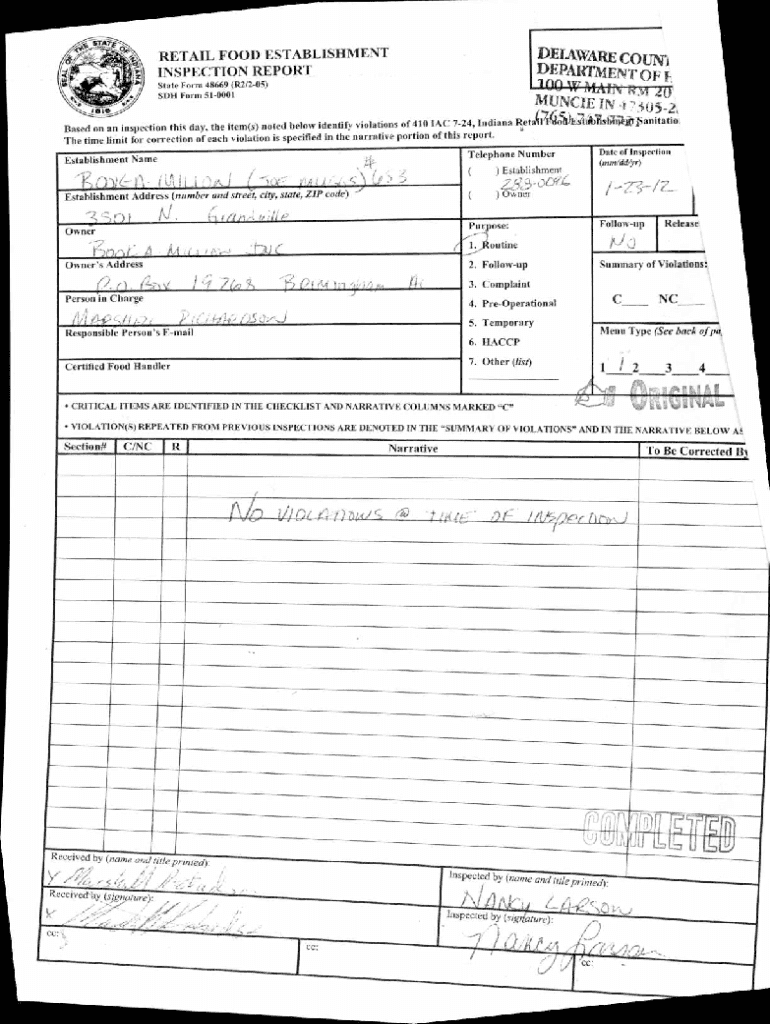 RETAIL FOOD ESTABLISHMENT
INSPECTION REPORT
State Form 48669 (R2/2-05)
SDH Form 51-0001
SEAL OF THE STATE OF INDIANA
1816
DELAWARE COUN
DEPARTMENT OF
100 W MAIN RM 20
MUNCIE IN 47305-2
Based on an inspection this day, the item(s) noted below identify violations of 410 IAC 7-24, Indiana Retail Food Establishment Sanitatio
The time limit for correction of each violation is specified in the narrative portion of this report.
Establishment Name
#
633
Telephone Number
( ) Establishment
( ) Owner
Date of Inspection
(mm/dd/yr)
1-23-12
Establishment Address (number and street, city, state, ZIP code)
3501 N.
Owner
BOOK A MILLION INC
Owner's Address
P.O. Box 19768 Birmingham Al
Person in Charge
MARSHALL RICHARDSON
Responsible Person's E-mail
Certified Food Handler
Purpose:
1. Routine
2. Follow-up
3. Complaint
4. Pre-Operational
5. Temporary
6. HACCP
7. Other (list)
Follow-up
No
Release
Summary of Violations:
C____ NC____
Menu Type (See back of pa
1 1 2____3____4
ORIGINAL
• CRITICAL ITEMS ARE IDENTIFIED IN THE CHECKLIST AND NARRATIVE COLUMNS MARKED "C"
• VIOLATION(S) REPEATED FROM PREVIOUS INSPECTIONS ARE DENOTED IN THE "SUMMARY OF VIOLATIONS" AND IN THE NARRATIVE BELOW AS
Section# C/NC R Narrative To Be Corrected By
No VIOLATIONS @ TIME OF INSPECTION
COMPLETED
Received by (name and title printed):
x Marshall
Inspected by (name and title printed):
NANCY LARSON
Received by (signature):
x
Inspected by (signature):
Nancy Larson
cc:
cc:
cc: